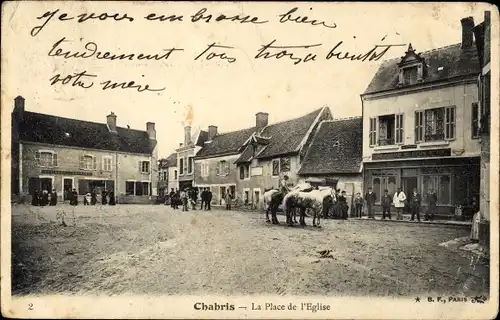 je vous embrasse bien
tendrement tous trois à bientôt
votre mère
2
Chabris — La Place de l'Eglise
★ B. F., PARIS